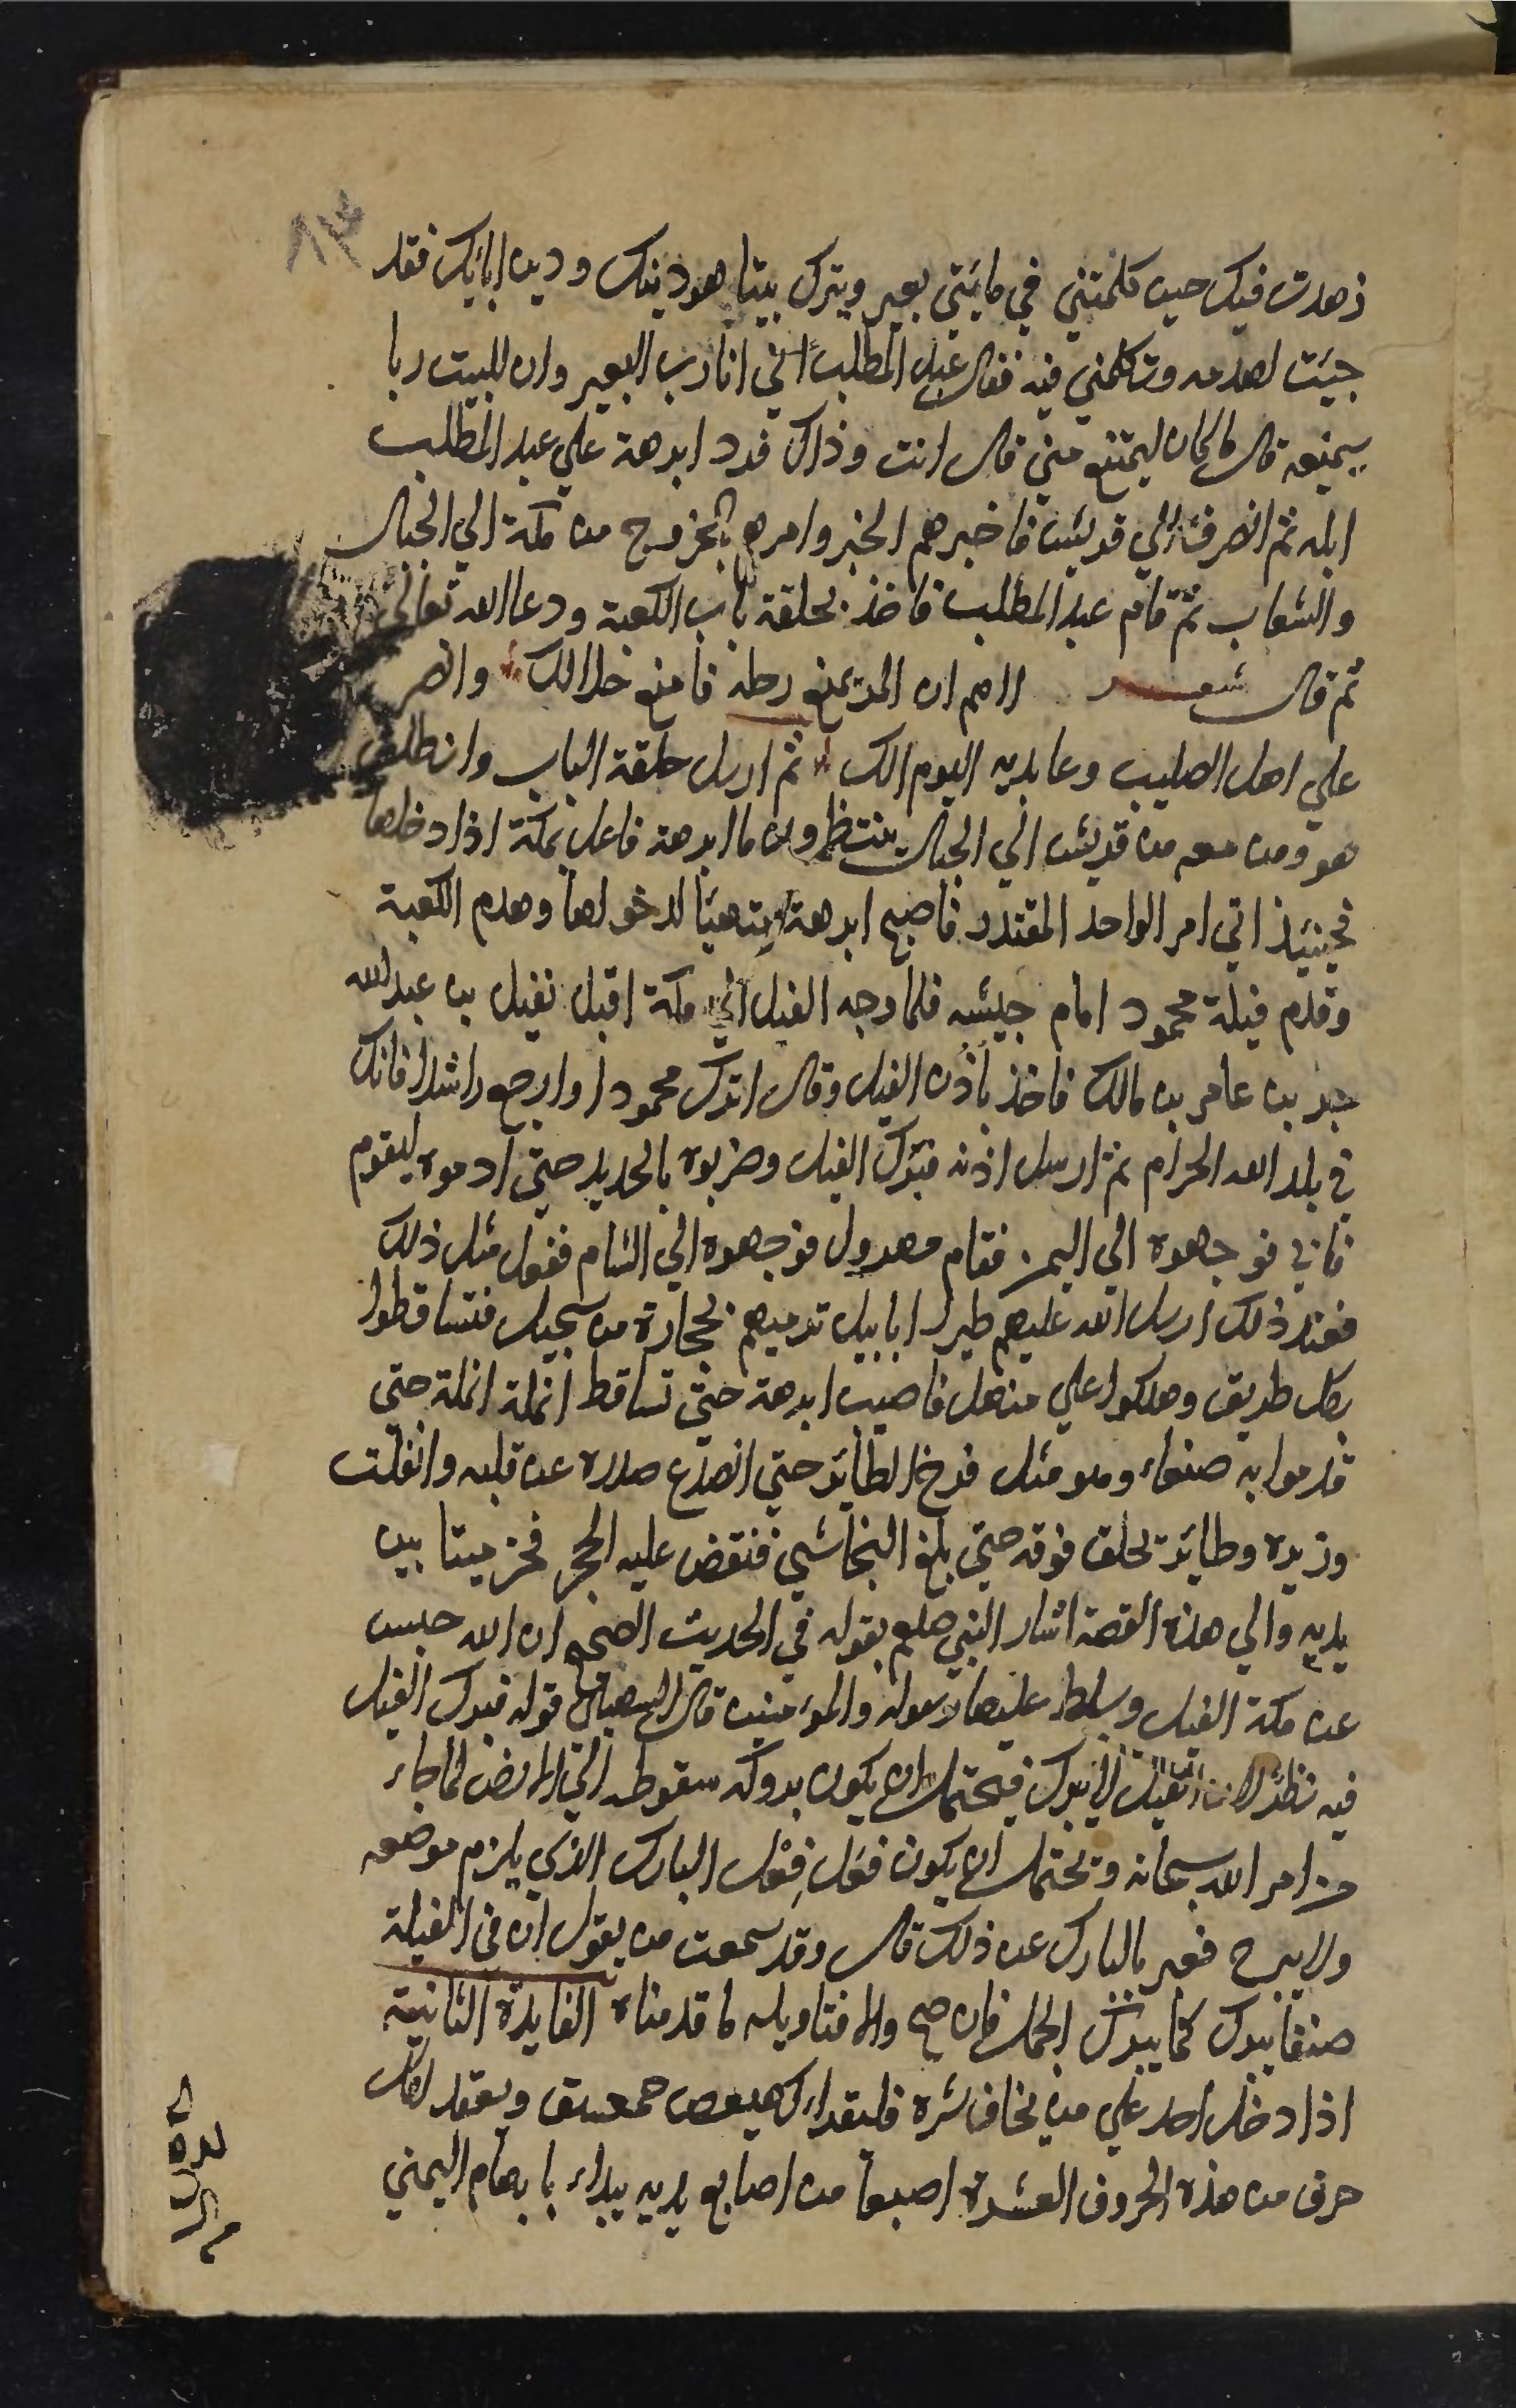 ٨٣
زهدت فيك حين كلمتني في مايتي بعير وتترك بيتا هو دينك ودين ابائك فقد
جيت لهدمه وتكلمني فيه فقال عبد المطلب اني انا رب البعير وان للبيت ربا
سيمنعه قال ما كان ليمتنع مني قال انت وذاك فرد ابرهة علي عبد المطلب
ابله ثم انصرف الي قريش فاخبرهم الخبر وامرهم بالخروج من مكة الي الجبال
والشعاب ثم قام عبد المطلب فاخذ بحلقة باب الكعبة ودعا الله تعالي
ثم قال شعر اللهم ان المرء يمنع رحله فامنع حلالك وانصر
علي اهل الصليب وعابديه اليوم الك ثم ارسل حلقة الباب وانطلق
هو ومن معه من قريش الي الجبال ينتظرون ما ابرهة فاعل بمكة اذا دخلها
فحينيذ اتي امر الواحد المقتدر فاصبح ابرهة متهيئا لدخولها وهدم الكعبة
وقدم فيلة محمود امام جيشه فلما وجه الفيل الي مكة اقبل نفيل بن عبد الله
جبر بن عامر بن مالك فاخذ باذن الفيل وقال ابرك محمودا وارجع راشدا فانك
في بلد الله الحرام ثم ارسل اذنه فبرك الفيل وضربوه بالحديد حتي ادموه ليقوم
فابي فوجهوه الي اليمن فقام مهرول فوجهوه الي الشام ففعل مثل ذلك
فعند ذلك ارسل الله عليهم طيرا ابابيل ترميهم بحجارة من سجيل فتساقطوا
بكل طريق وهلكوا علي منهل فاصيب ابرهة حتي تساقط انملة انملة حتي
قدموا به صنعاء وهو مثل فرخ الطائر حتي انصدع صدره عن قلبه وانفلت
وزيره وطائر يحلق فوقه حتي بلغ النجاشي فنقض عليه الحجر فخر ميتا بين
يديه والي هذه القصة اشار النبي صلعم بقوله في الحديث الصحيح ان الله حبس
عن مكة الفيل وسلط عليها رسوله والمؤمنين قال السهيلي قوله فبرك الفيل
فيه نظر لان الفيل لا يبرك فيحتمل ان يكون بروكه سقوطه الي الارض لما جاء
من امر الله سبحانه ويحتمل ان يكون فعل فِعْل البارك الذي يلزم موضعه
ولا يبرح فعبر بالبارك عن ذلك قال وقد سمعت من يقول ان في الفيلة
صنفا يبرك كما يبرك الجمل فان صح والا فتاويله ما قدمناه الفايدة الثانية
اذا دخل احد علي من يخاف شره فليقراء كهيعص حمعسق ويعقد لكل
حرف من هذه الحروف العشرة اصبعا من اصابع يديه يبداء بابهام اليمني